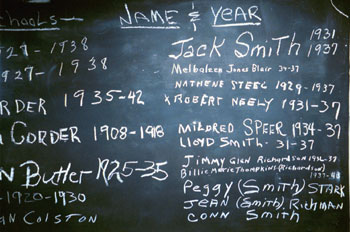 chools— NAME & YEAR
1927 - 1938
1927 - 1938
ORDER 1935-42
CORDER 1908-1918
N Butler 1925-35
1920-1930
AN COLSTON
Jack Smith 1931 1937
Melbaleen Jones Blair 34-37
NATHENE STEEL 1929-1937
x ROBERT NEELY 1931-37
MILDRED SPEER 1934-37
LLOYD SMITH - 31-37
JIMMY GLEN RICHARDSON 1932-38
Billie Marie Thompkins (Richardson)
Peggy (Smith) STARK
JEAN (Smith) RICHMAN
CONN Smith